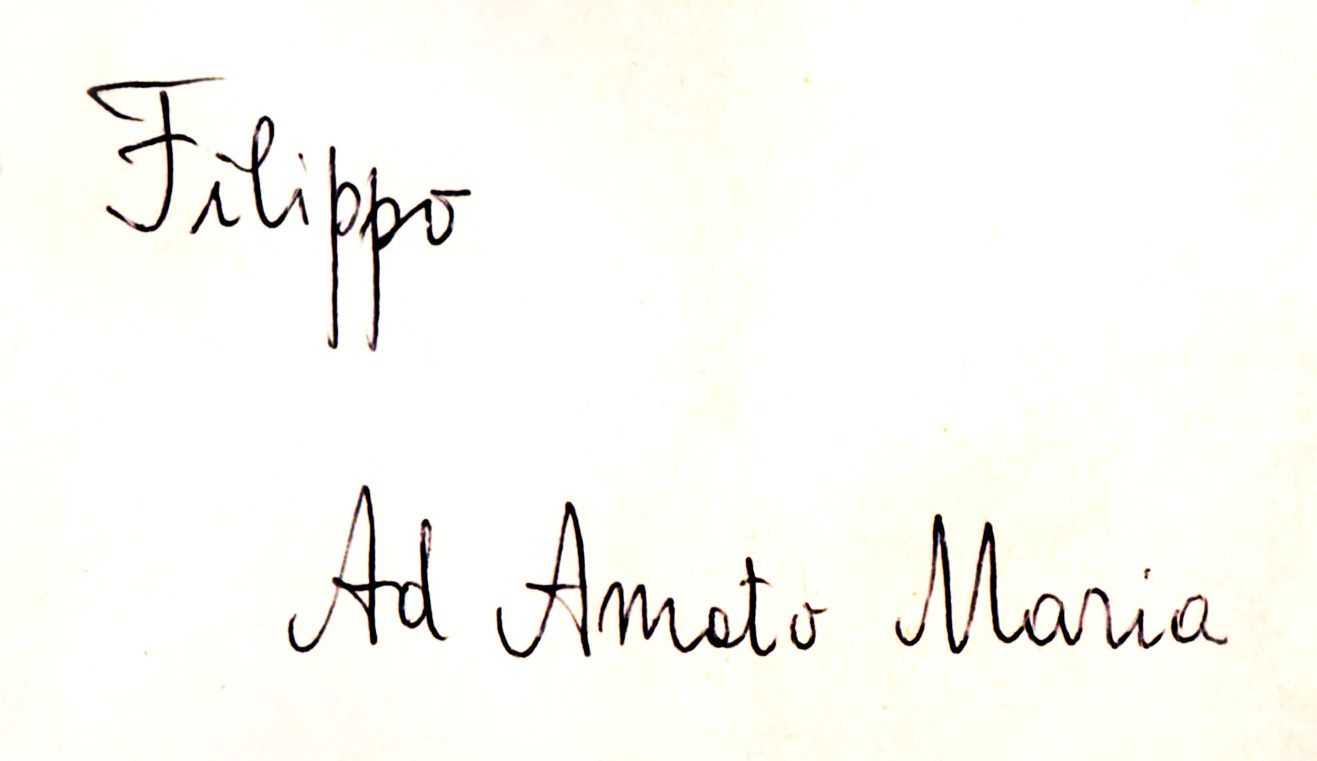 Filippo
Ad Amato Maria